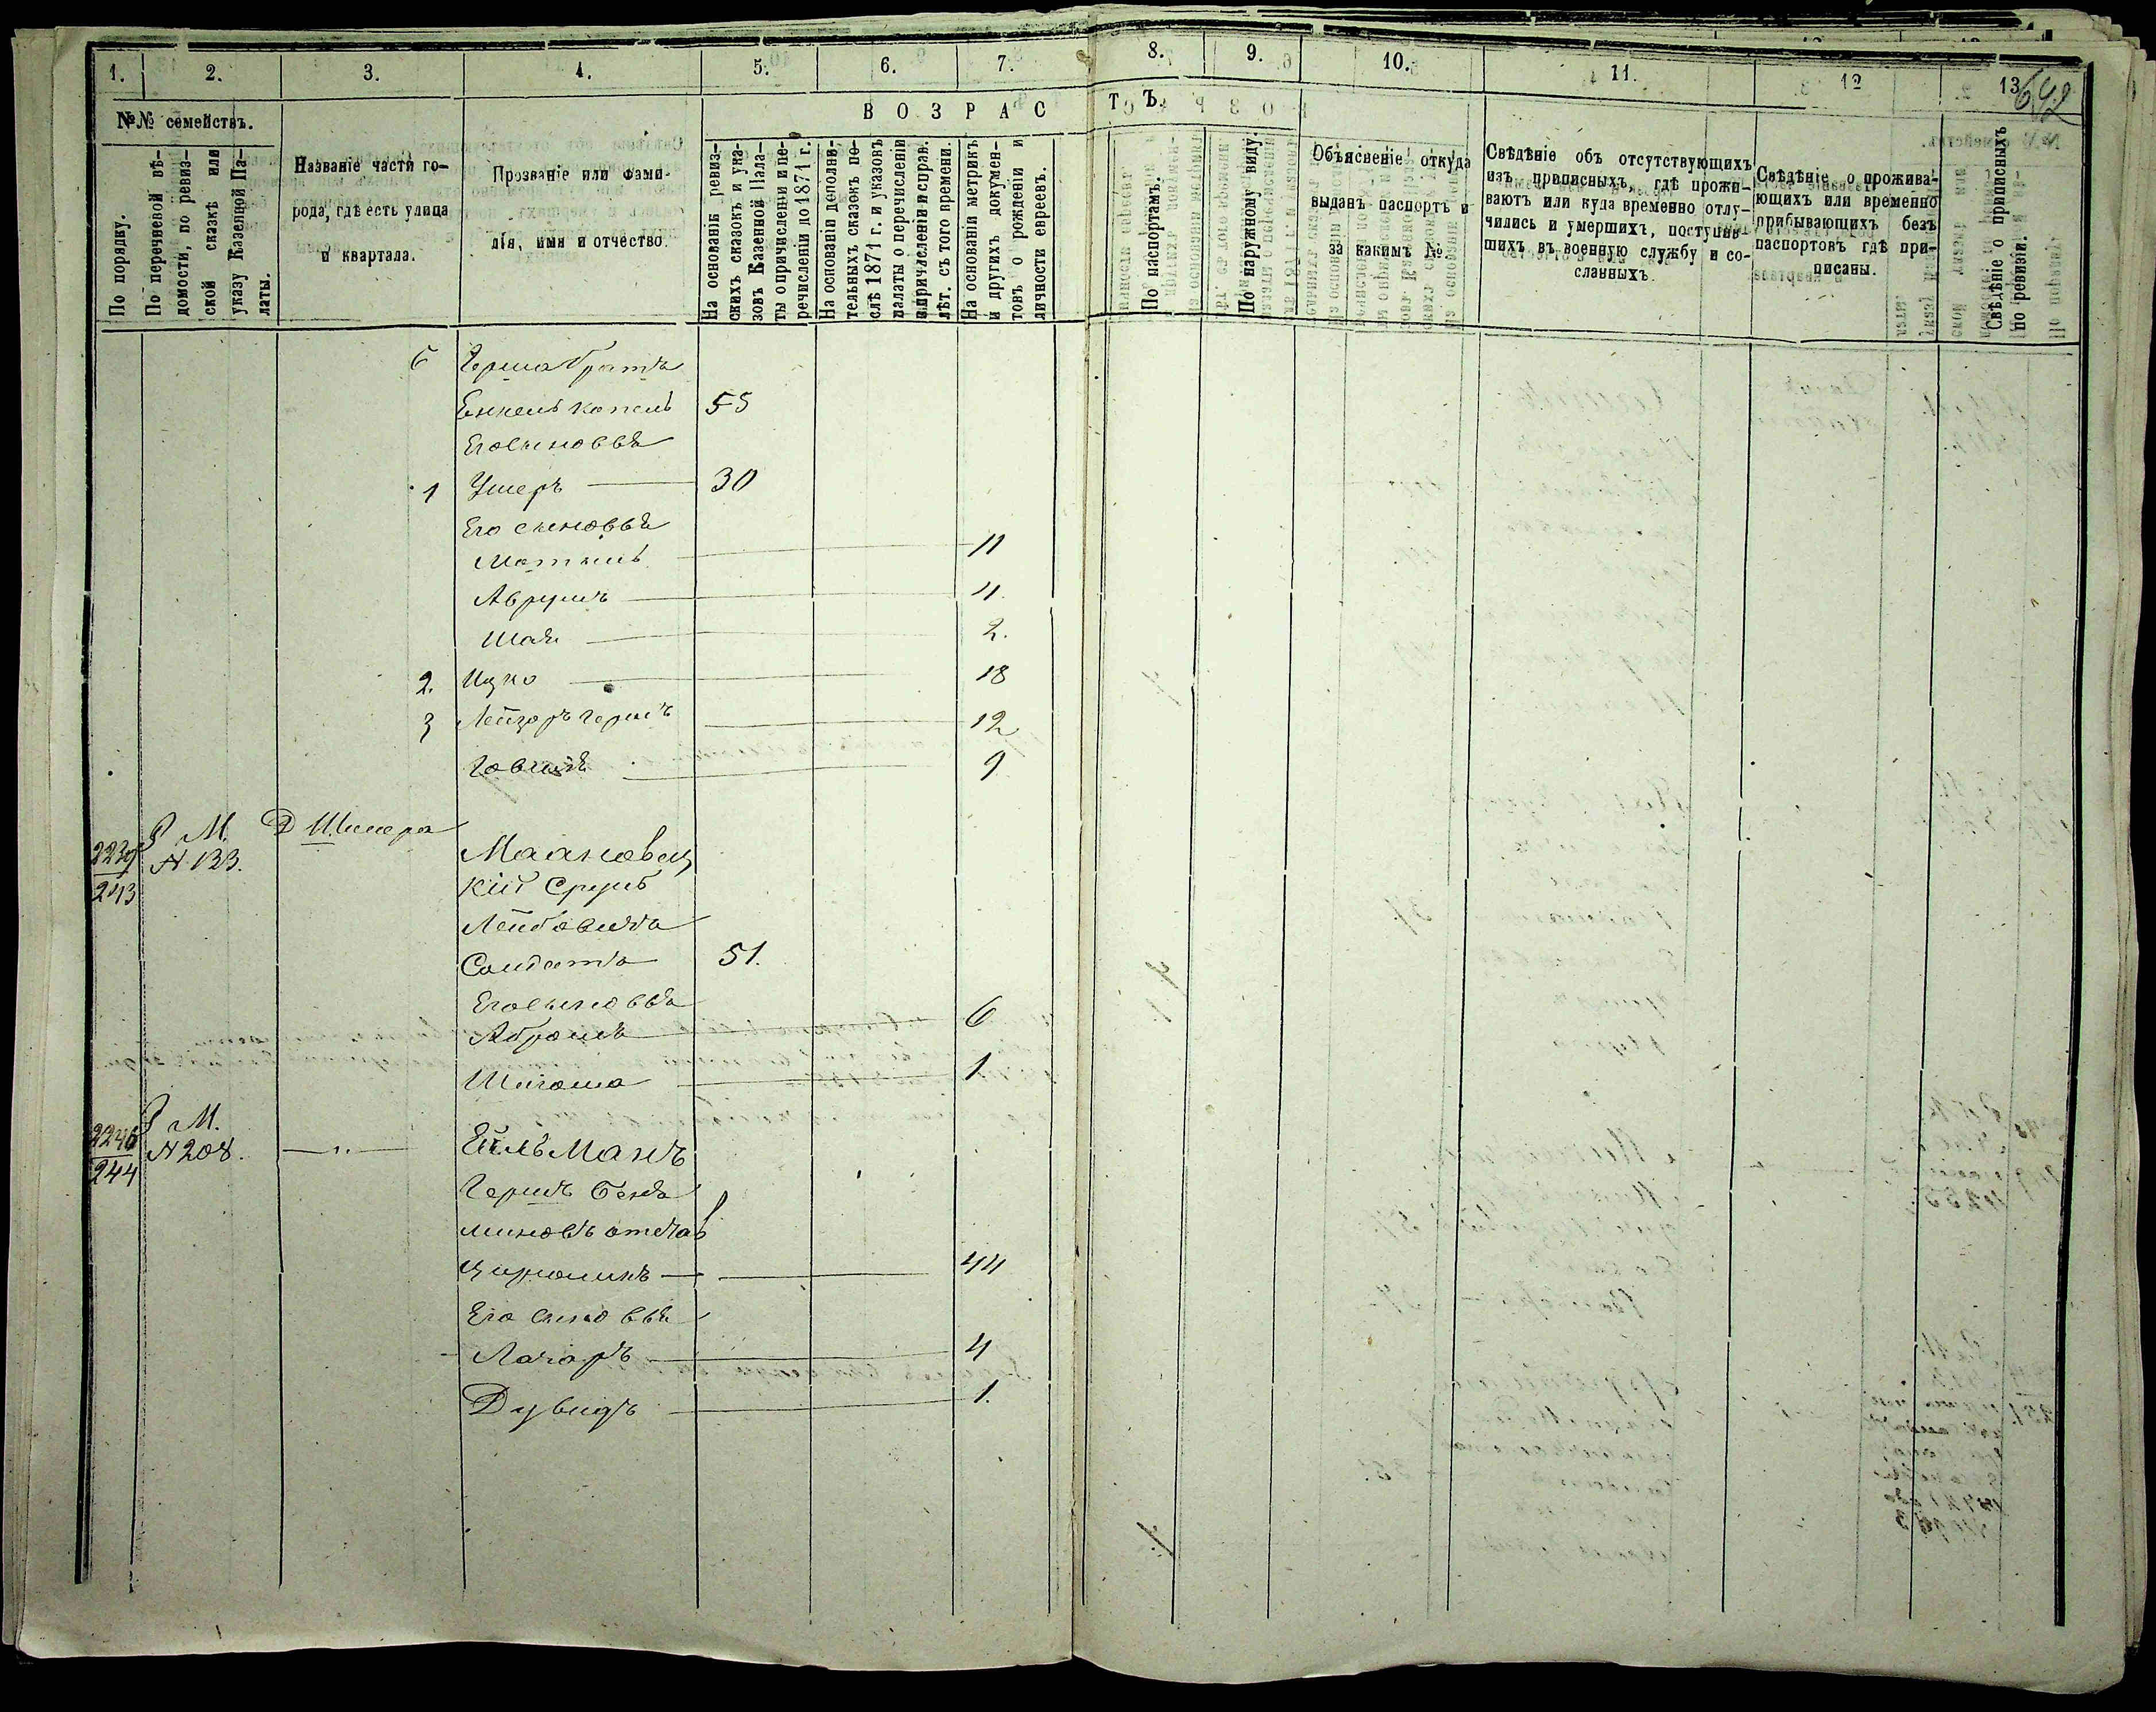 1. 2. 3. 4. 5. 6. 7. 8. 9. 10. 11. 12 13
642
№№ семействъ.
По порядку.
По перечневой вѣ-
домости, по ревиз-
ской сказкѣ или
указу Казенной Па-
латы.
Названіе части го-
рода, гдѣ есть улица
и квартала.
Прозваніе или фами-
лія, имя и отчество.
ВОЗРАСТЪ.
На основаніи ревиз-
скихъ сказокъ и ука-
зовъ Казенной Пала-
ты о причисленіи и пе-
речисленіи до 1871 г.
На основаніи дополни-
тельныхъ сказокъ по-
слѣ 1871 г. и указовъ
палаты о перечисленіи
и причисленіи и справ.
лѣт. съ того времени.
На основаніи метрикъ
и другихъ докумен-
товъ о рожденіи и
личности евреевъ.
По паспортамъ.
По наружному виду.
Объясненіе откуда
выданъ паспортъ и
за какимъ №.
Свѣдѣніе объ отсутствующихъ
изъ приписныхъ, гдѣ прожи-
ваютъ или куда временно отлу-
чились и умершихъ, поступив-
шихъ въ военную службу и со-
сланныхъ.
Свѣдѣніе о прожива-
ющихъ или временно
прибывающихъ безъ
паспортовъ гдѣ при-
писаны.
Свѣдѣніе о приписныхъ
по ревизіи.
Герша братъ
Енкель Копель 55
Его сыновья
1 Ушеръ 30
Его сыновья
Моткель 11
Аврумъ 4
Шая 2.
2. Ицко 18
3 Лейзоръ Гершъ 12
Говшія 9
2239 Р М. Д Шмера
243 N 133. Маановец
кій Сруль
Лейбовичъ
Солдатъ 51.
Его сыновья
Абрамъ 6
Шлиома 1
2240 Р М.
244 N 208. —"— Ейльманъ
Гершъ Бенья
миновъ отстав
Цирюльникъ 44
Его сыновья
Лазарь 4
Дувидъ 1.